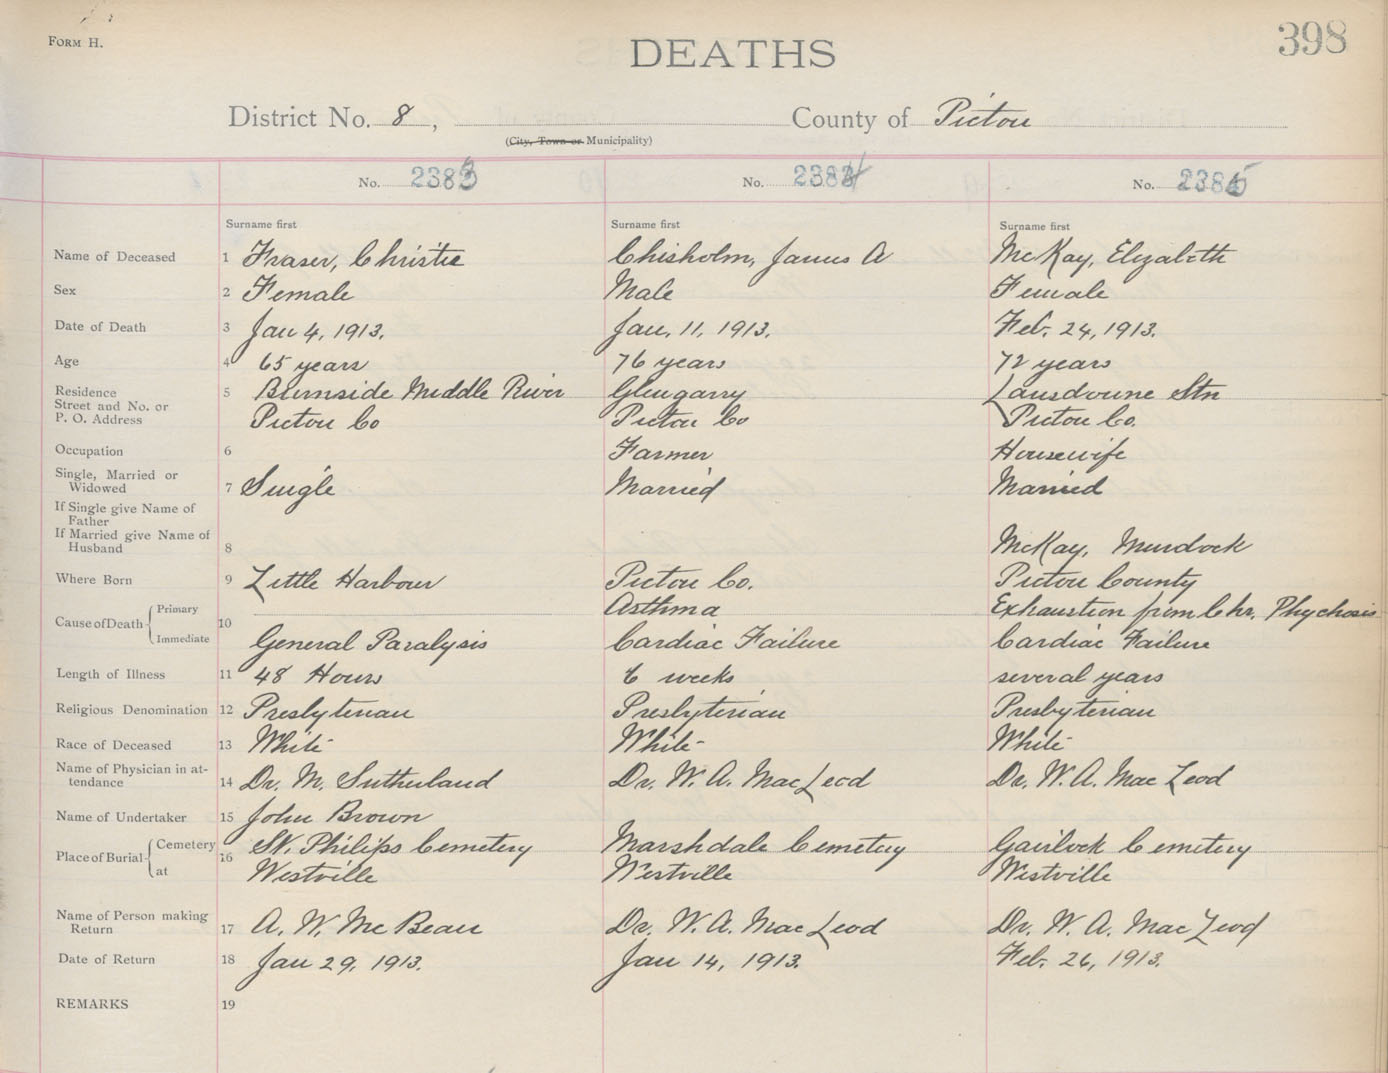 FORM H.
398
DEATHS
District No. 8, County of Pictou
(City, Town or Municipality)
No. 2383 No. 2384 No. 2385
Surname first Surname first Surname first
Name of Deceased 1 Fraser, Christie Chisholm, James A McKay, Elizabeth
Sex 2 Female Male Female
Date of Death 3 Jan 4, 1913. Jan. 11, 1913. Feb. 24, 1913.
Age 4 65 years 76 years 72 years
Residence 5 Burnside Middle River Glengarry Lansdowne Stn
Street and No. or
P. O. Address Pictou Co Pictou Co Pictou Co.
Occupation 6 Farmer Housewife
Single, Married or
Widowed 7 Single Married Married
If Single give Name of
Father
If Married give Name of
Husband 8 McKay, Murdock
Where Born 9 Little Harbour Pictou Co. Pictou County
Cause of Death Primary 10 Asthma Exhaustion from Chr. Phychosis
Immediate General Paralysis Cardiac Failure Cardiac Failure
Length of Illness 11 48 Hours 6 weeks several years
Religious Denomination 12 Presbyterian Presbyterian Presbyterian
Race of Deceased 13 White White White
Name of Physician in at-
tendance 14 Dr. M. Sutherland Dr. W. A. MacLeod Dr. W. A. MacLeod
Name of Undertaker 15 John Brown
Place of Burial Cemetery 16 St. Philips Cemetery Marshdale Cemetery Gairlock Cemetery
at Westville Westville Westville
Name of Person making
Return 17 A. W. McBean Dr. W. A. MacLeod Dr. W. A. MacLeod
Date of Return 18 Jan 29, 1913. Jan 14, 1913. Feb. 26, 1913.
REMARKS 19